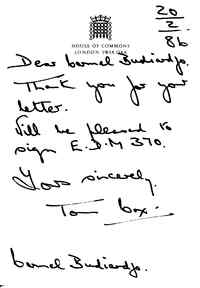 20
2
86
HOUSE OF COMMONS
LONDON SW1A 0AA
Dear Carmel Budiardjo,
Thank you for your
letter.
Will be pleased to
sign E.D.M 370.
Yours sincerely,
Tom Cox.
Carmel Budiardjo.